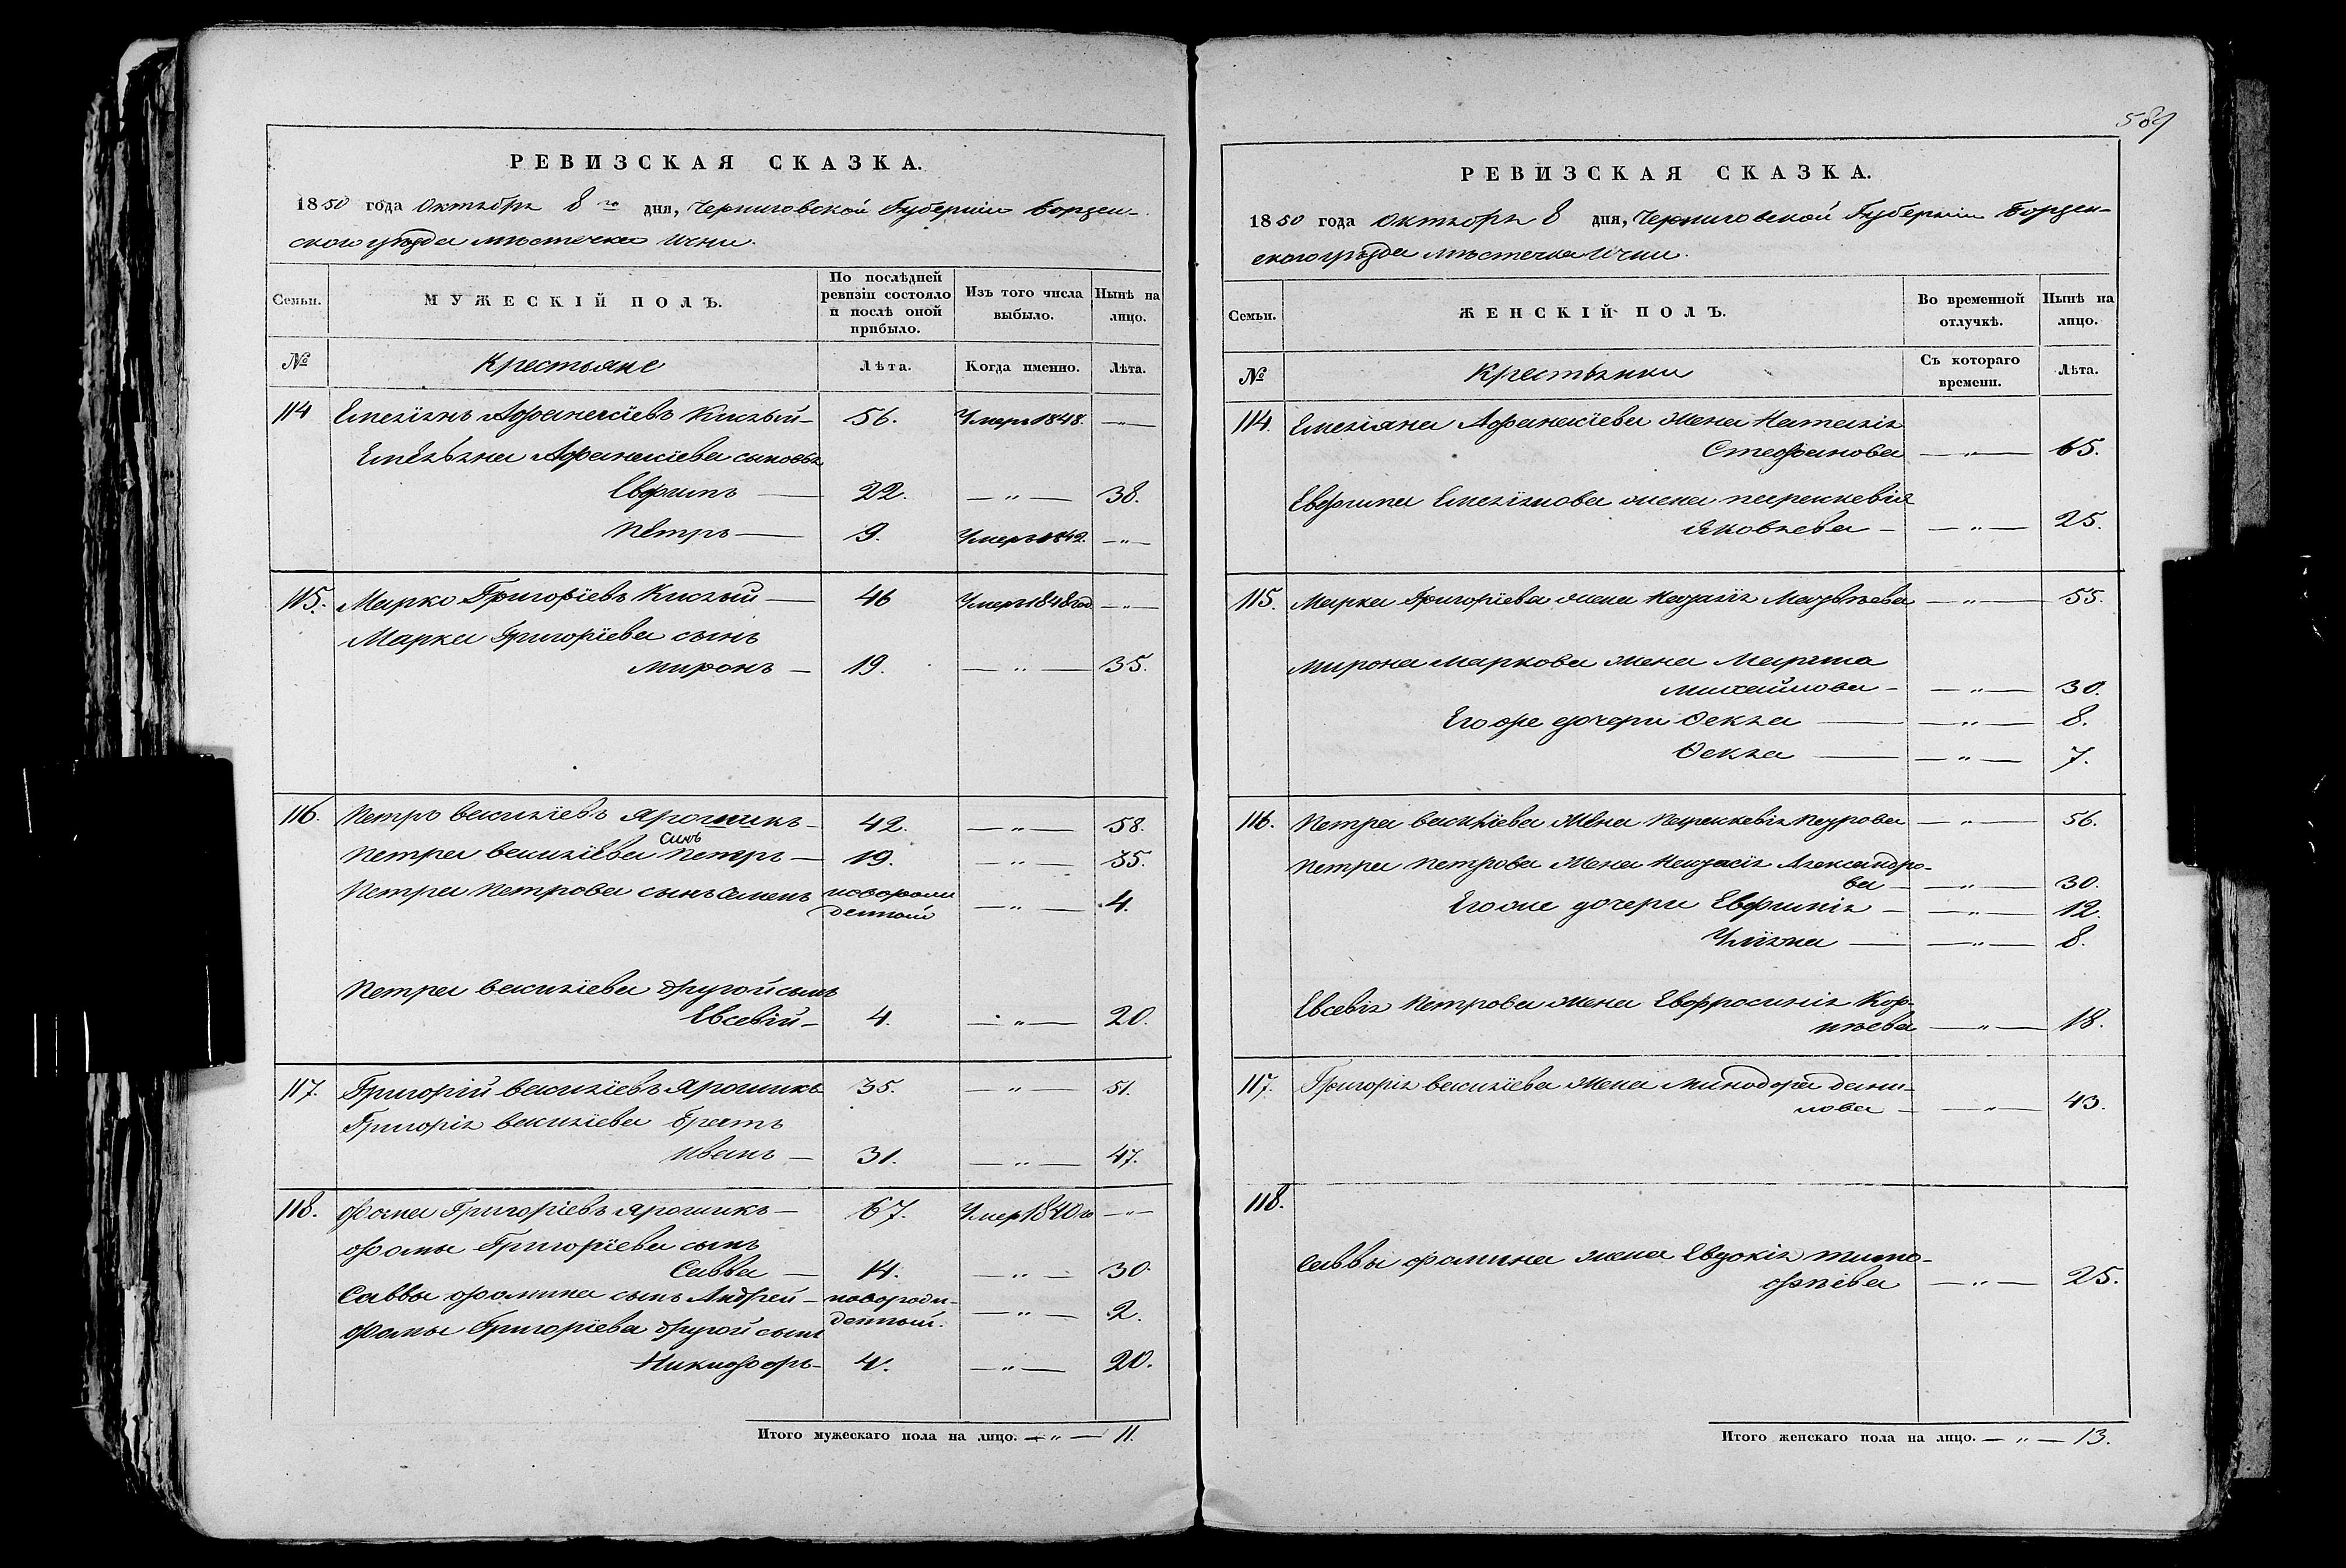 РЕВИЗСКАЯ СКАЗКА.
1850 года Октября 8 го дня, Черниговской Губернии Борзен-
ского уѣзда мѣстечка Ични.
Семьи. МУЖЕСКІЙ ПОЛЪ. По послѣдней ревизіи состояло и послѣ оной прибыло. Изъ того числа выбыло. Нынѣ на лицо.
№ Крестьяне Лѣта. Когда именно. Лѣта.
114 Емеліянъ Афанасіевъ Кислый — 56. Умеръ 1848. — „ —
Емельяна Афанасіева сыновья
Евфимъ — 22. — „ — 38.
Петръ — 9. Умеръ 1842. — „ —
115. Марко Григоріевъ Кислый — 46 Умеръ 1848 год — „ —
Марка Григоріева сынъ
Миронъ — 19. — „ — 35.
116. Петръ Василіевъ Ярошикъ — 42. — „ — 58.
сынъ
Петра Василіева Петръ — 19. — „ — 35.
Петра Петрова сынъ Семенъ новорож
денный — „ — 4.
Петра Василіева другой сынъ
Евсевій — 4. — „ — 20.
117. Григорій Василіевъ Ярошикъ 35. — „ — 51.
Григорія Василіева братъ
Иванъ — 31. — „ — 47.
118. Фома Григоріевъ Ярошикъ — 67. Умер 1840 го — „ —
Фомы Григоріева сынъ
Савва — 14. — „ — 30.
Саввы Фомина сынъ Андрей — новорож-
денный. — „ — 2.
Фомы Григоріева другой сынъ
Никифоръ — 4. — „ — 20.
Итого мужескаго пола на лицо. — „ — 11.
589
РЕВИЗСКАЯ СКАЗКА.
1850 года Октября 8 дня, Черниговской Губерніи Борзен-
ского уѣзда мѣстечка Ични.
Семьи. ЖЕНСКІЙ ПОЛЪ. Во временной отлучкѣ. Нынѣ на лицо.
№ Крестьянки Съ котораго времени. Лѣта.
114. Емеліяна Афанасіева жена Наталія
Стефанова — „ — 65.
Евфима Емеліянова жена Параскевія
Яковлева — — „ — 25.
115. Марка Григоріева жена Матвѣева — „ — 55.
Мирона Маркова жена Марѳа
Михайлова — — „ — 30.
Его же дочери Ѳекла — — „ — 8.
Ѳекла — — „ — 7.
116. Петра Василіева жена Параскевія — „ — 56.
Петра Петрова жена Александро-
ва — — „ — 30.
Его же дочери Евфимія — — „ — 12.
Уліяна — — „ — 8.
Евсевія Петрова жена Евфросинія Кор-
нѣева — „ — 18.
117. Григорія Василіева жена Минодора Дани-
лова — — „ — 43.
118.
Саввы Фомина жена Евдокія Тимо-
фѣева — „ — 25.
Итого женскаго пола на лицо. — „ — 13.